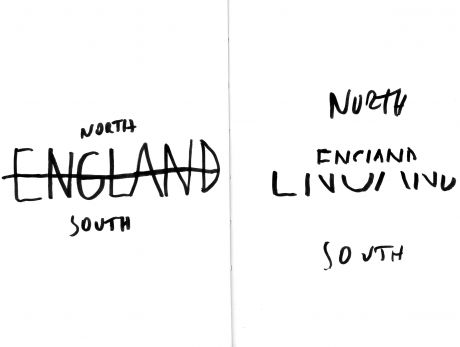 NORTH
ENGLAND
SOUTH
NORTH
ENGLAND
SOUTH